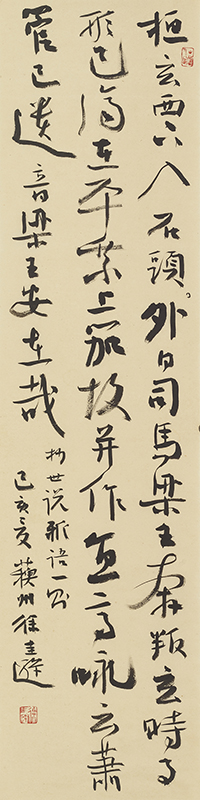 桓玄西下入石頭外白司馬梁王奔叛玄時事
形已濟在平乘上笳鼓并作直高詠云蕭
管有遺音梁王安在哉
抄世说新语一則
己亥夏蘇州徐